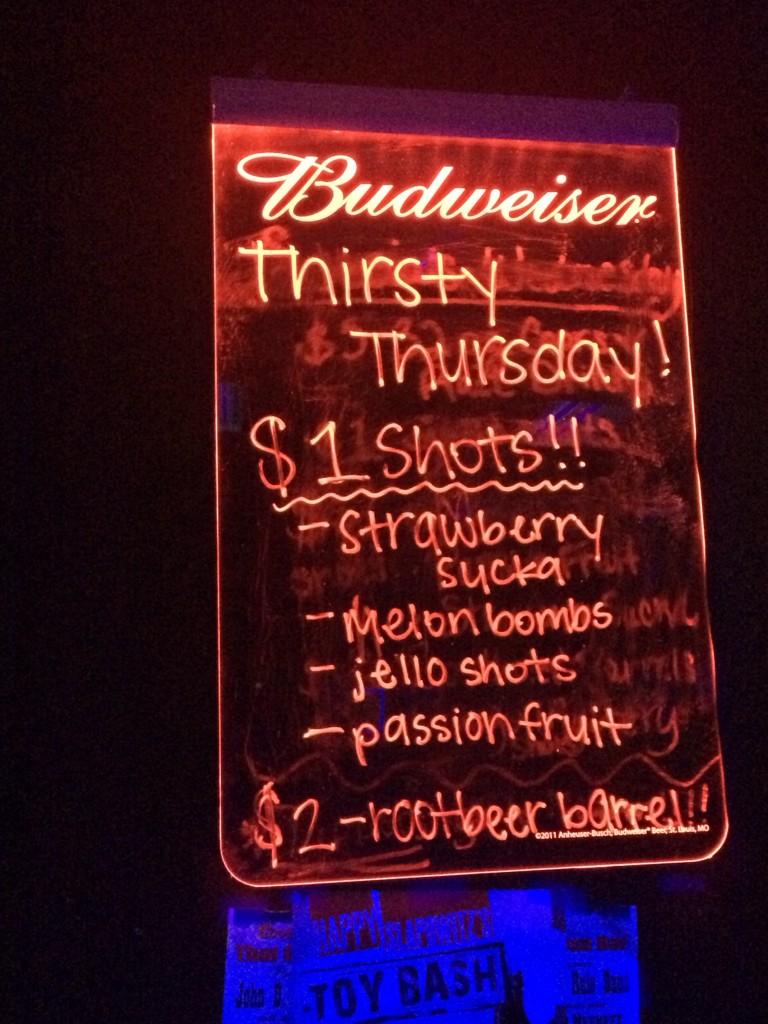 Budweiser
Thirsty
Thursday!
$1 Shots!!
- strawberry
sucka
- Melon bombs
- jello shots
- passion fruit
$2 - rootbeer barrel!!
©2011 Anheuser-Busch, Budweiser® Beer, St. Louis, MO
HAPPY
John D.
TOY BASH